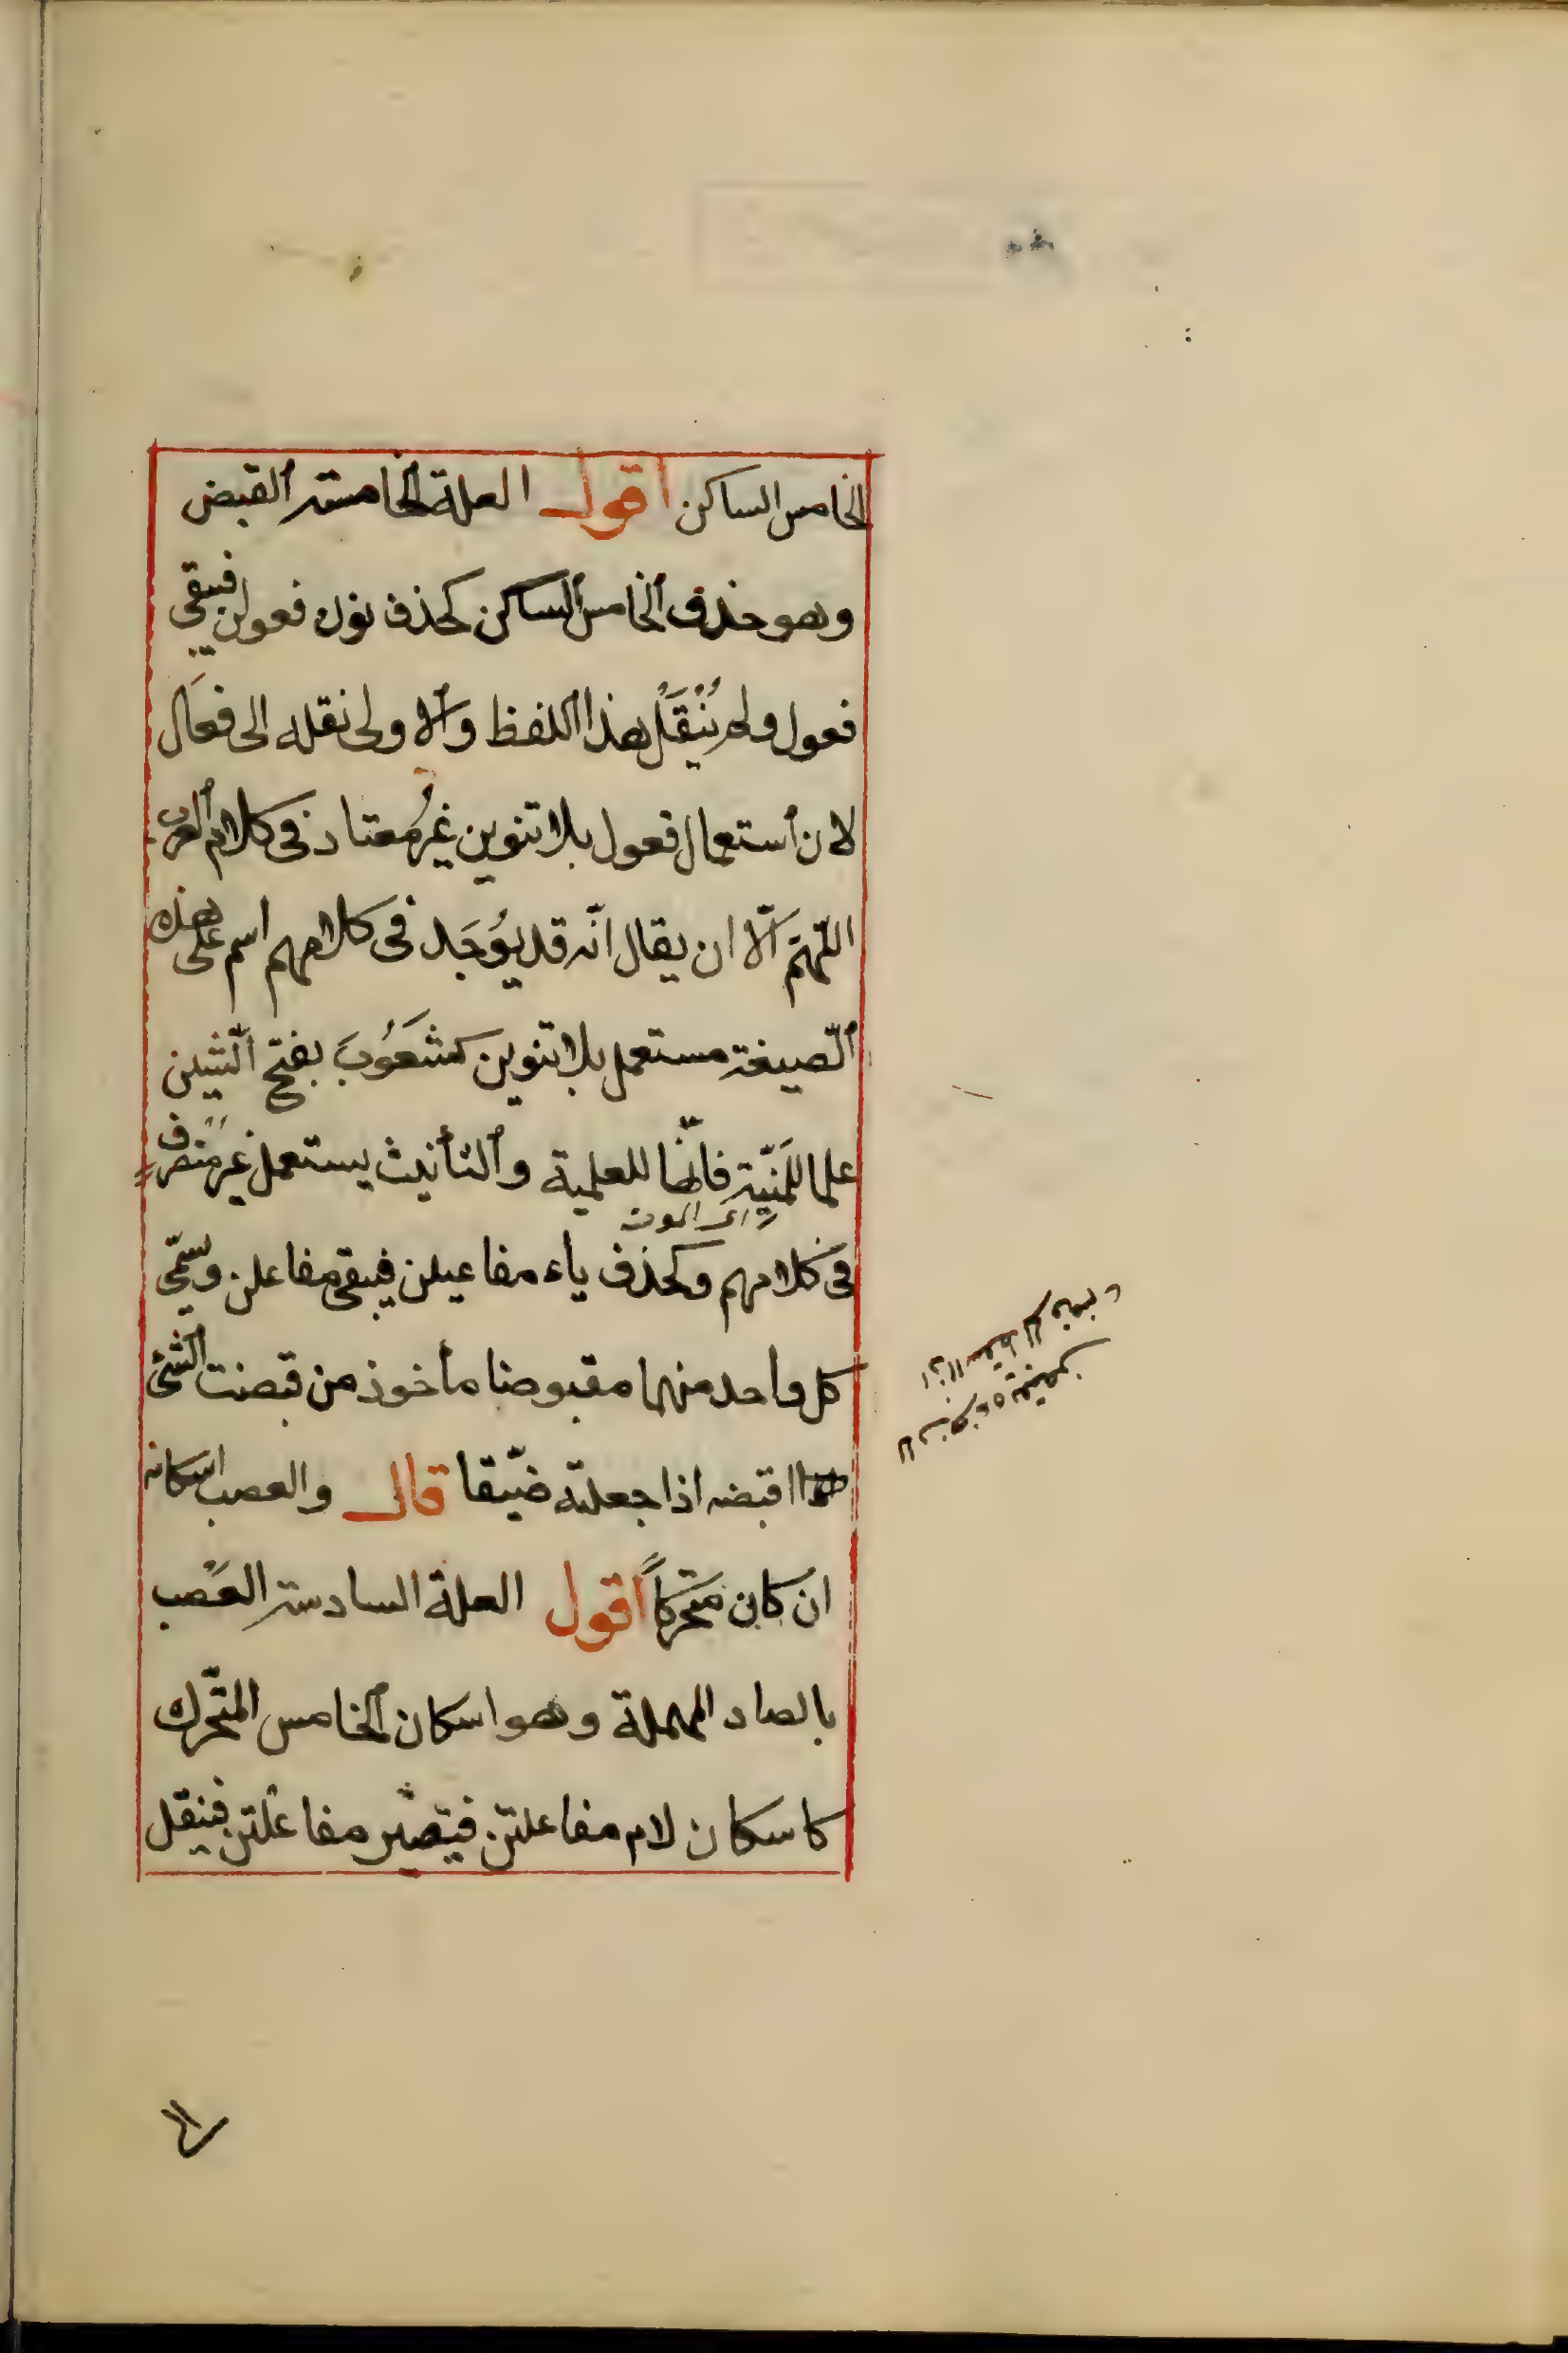 الخامس الساكن اقول العلة الخامسة القبض
وهو حذف الخامس الساكن كحذف نون فعولن فيبقى
فعول ولم يُنْقَل هذا اللفظ والاولى نقله الى فعَال
لان استعمال فعول بلا تنوين غيرُ معتاد فى كلام العرب
اللّهمّ الّا ان يقال انّه قد يُوجَد فى كلامهم اسم على هذه
الصّيغة مستعمل بلا تنوين كشَعُوبَ بفتح الشّين
علما للمَنِيّة فانّها للعلمية والتأنيث يستعمل غير منصرف
اى الموت
فى كلامهم وكحذف ياء مفاعيلن فيبقى مفاعلن وسمّى
كل واحد منهما مقبوضا مأخوذ من قبضت الشئ
اقبضه اذا جعلته ضيّقا قال والعصب اسكانه
ان كان متحركاً اقول العلة السادسة العَصْب
بالصاد المهملة وهو اسكان الخامس المتحّرك
كاسكان لام مفاعلتن فيصير مفاعلْتن فينقل